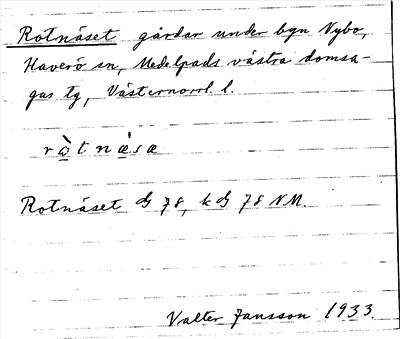 Rotnäset gårdar under byn Nybo,
Haverö sn, Medelpads västra domsa-
gas tg, Västernorrl. l.
ròtnæ̀sæ
Rotnäset G 78, kG 78 NM.
Valter Jansson 1933.